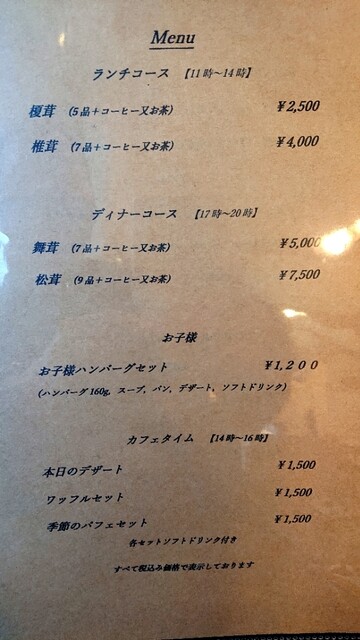 Menu
ランチコース 【11時～14時】
榎茸 （5品＋コーヒー又お茶） ￥2,500
椎茸 （7品＋コーヒー又お茶） ￥4,000
ディナーコース 【17時～20時】
舞茸 （7品＋コーヒー又お茶） ￥5,000
松茸 （9品＋コーヒー又お茶） ￥7,500
お子様
お子様ハンバーグセット ￥1,200
（ハンバーグ160g, スープ, パン, デザート, ソフトドリンク）
カフェタイム 【14時～16時】
本日のデザート ￥1,500
ワッフルセット ￥1,500
季節のパフェセット ￥1,500
各セットソフトドリンク付き
すべて税込み価格で表示しております